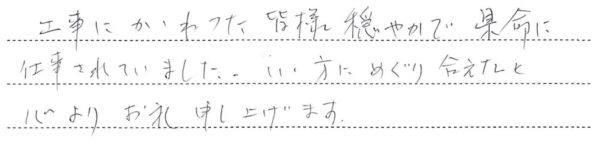 工事にかいわった 皆様 穏やかで 県命に
仕事されていました。いい方に めぐり合えたと
心より お礼 申し上げます.